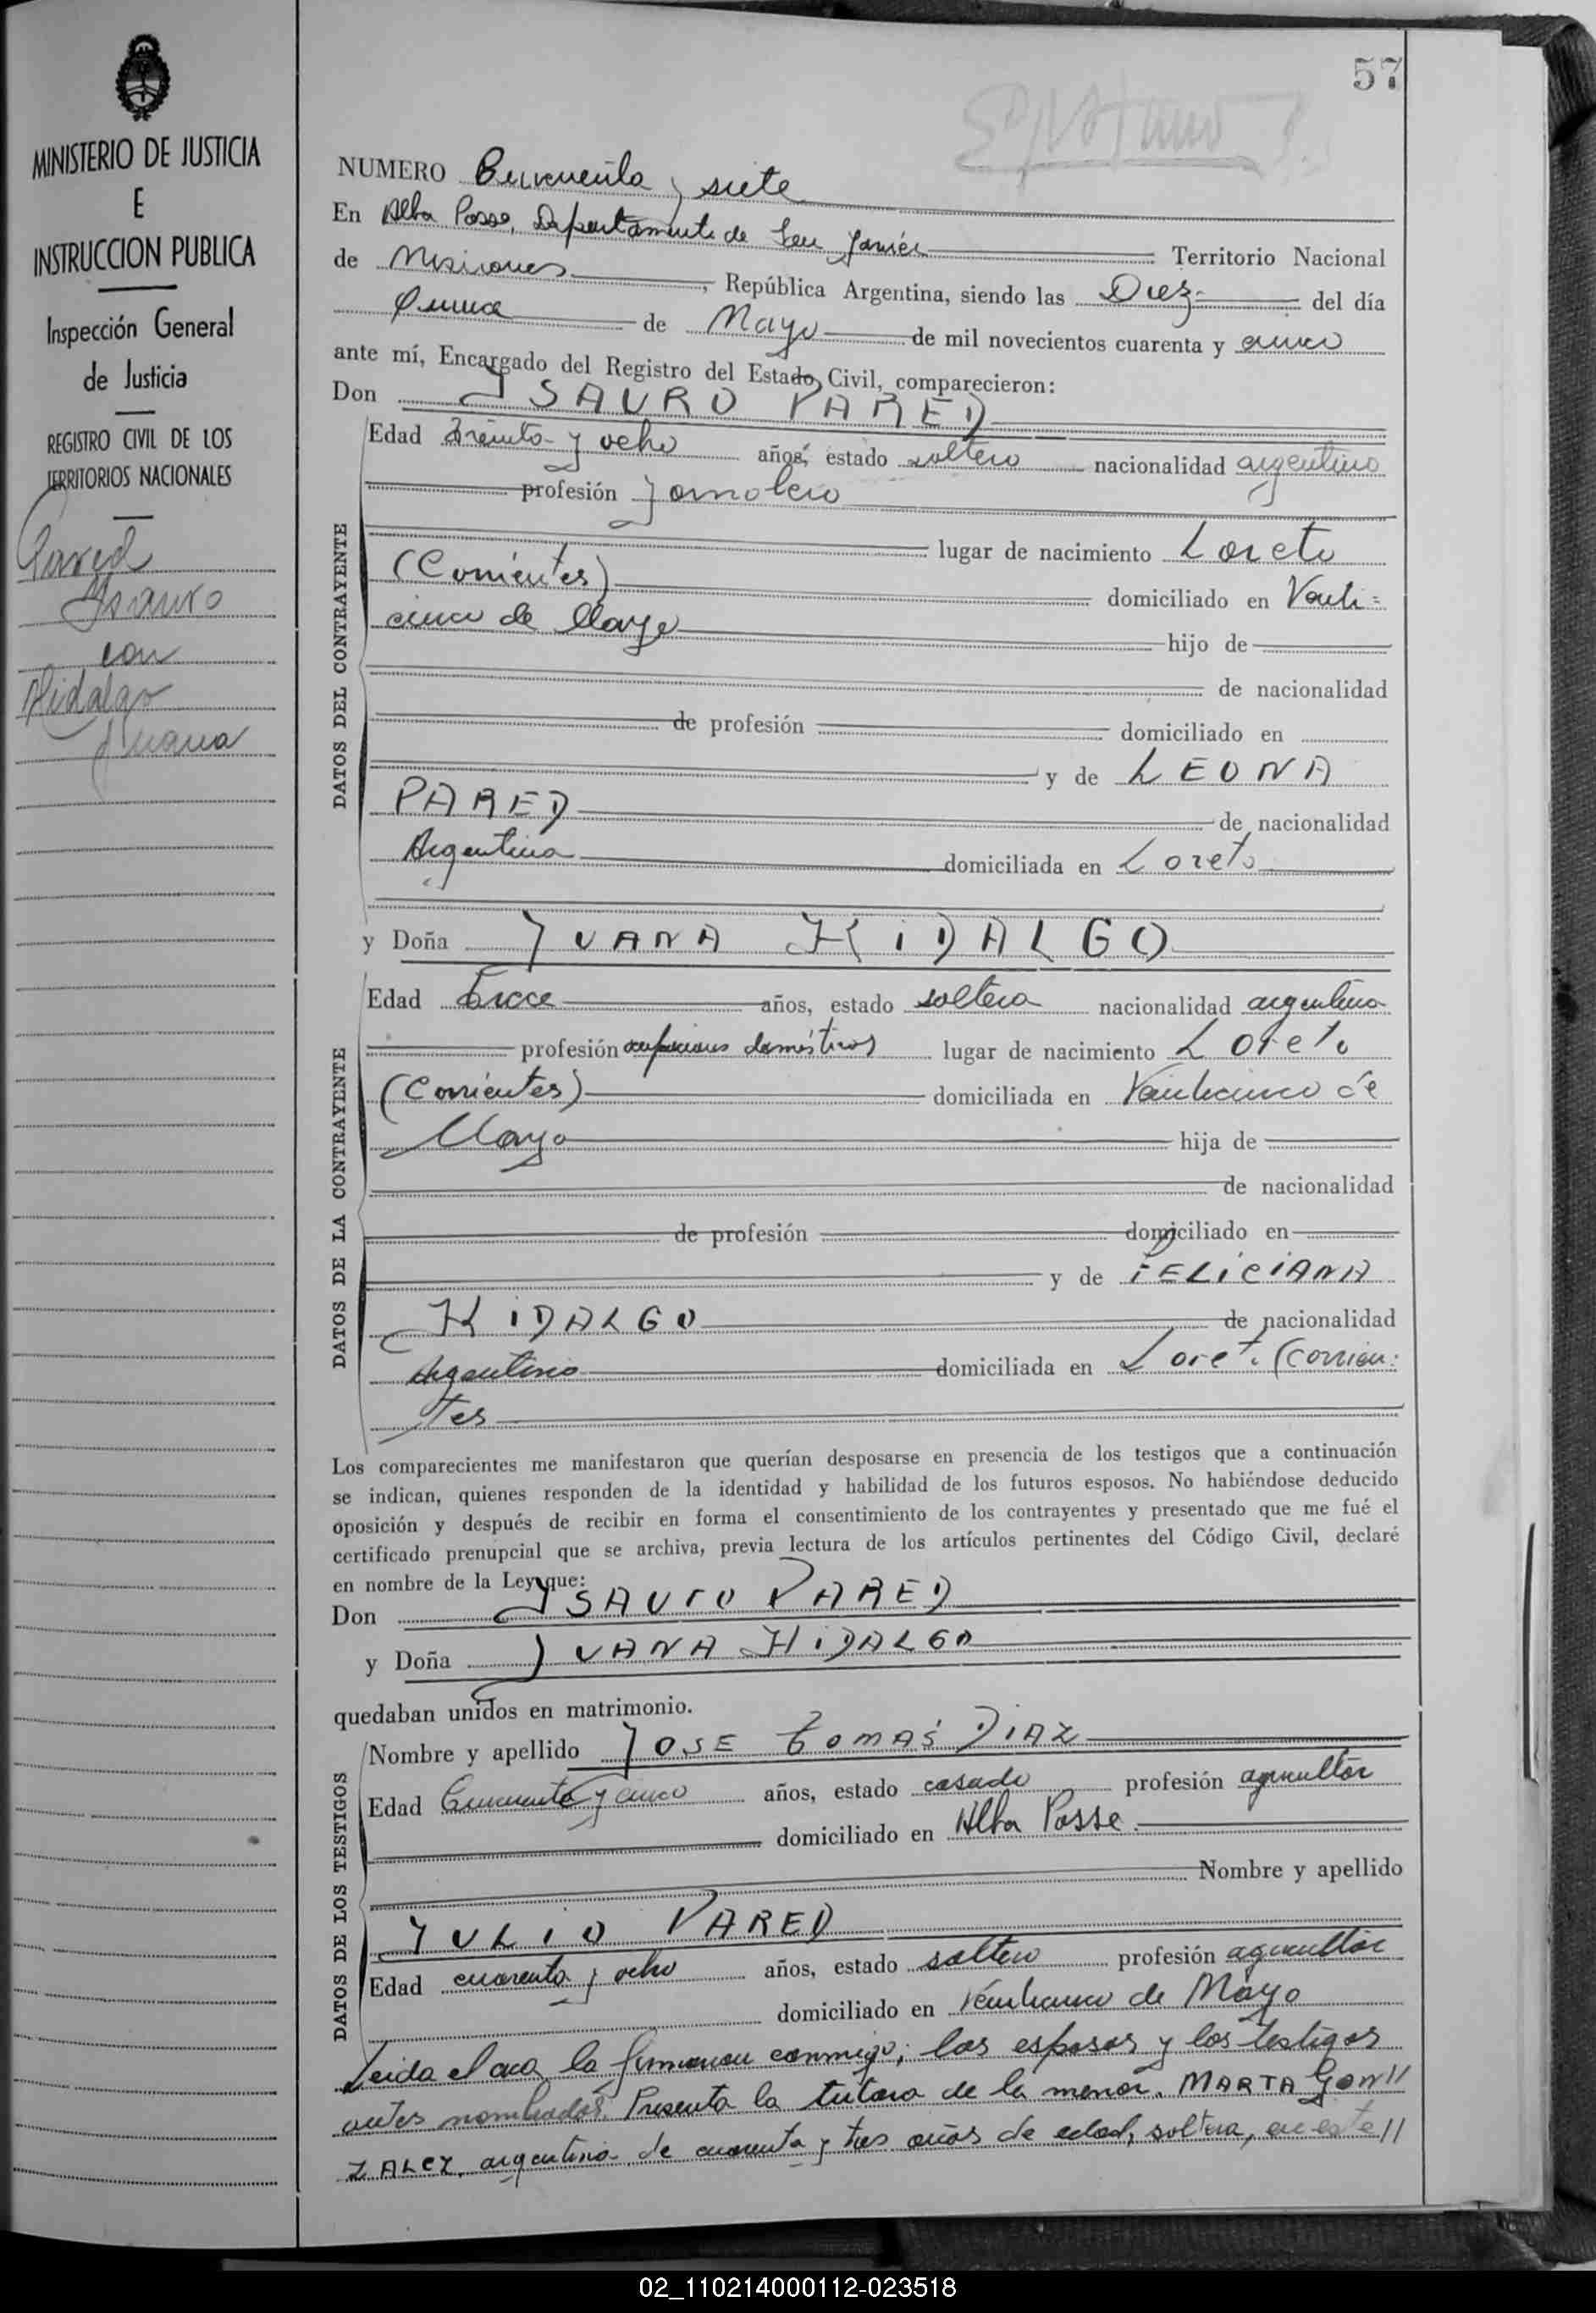 57
MINISTERIO DE JUSTICIA
E
INSTRUCCION PUBLICA
Inspección General
de Justicia
REGISTRO CIVIL DE LOS
TERRITORIOS NACIONALES
Pared
Isauro
con
Hidalgo
Juana
NUMERO Cincuenta y siete
En Alba Posse, Departamento de San Javier Territorio Nacional
de Misiones, República Argentina, siendo las Diez del día
de Mayo de mil novecientos cuarenta y cinco
ante mí, Encargado del Registro del Estado Civil, comparecieron:
Don ISAURO PARED
DATOS DEL CONTRAYENTE
Edad Treinta y ocho años, estado soltero nacionalidad argentino
profesión Jornalero
lugar de nacimiento Loreto
(Corrientes) domiciliado en Veinti=
cinco de Mayo hijo de
de nacionalidad
de profesión domiciliado en
y de LEONA
PARED de nacionalidad
Argentina domiciliada en Loreto
y Doña JUANA HIDALGO
DATOS DE LA CONTRAYENTE
Edad Trece años, estado soltera nacionalidad argentina
profesión ocupaciones domésticas lugar de nacimiento Loreto
(Corrientes) domiciliada en Veinticinco de
Mayo hija de
de nacionalidad
de profesión domiciliado en
y de FELICIANA
HIDALGO de nacionalidad
Argentina domiciliada en Loreto (Corrien=
tes
Los comparecientes me manifestaron que querían desposarse en presencia de los testigos que a continuación
se indican, quienes responden de la identidad y habilidad de los futuros esposos. No habiéndose deducido
oposición y después de recibir en forma el consentimiento de los contrayentes y presentado que me fué el
certificado prenupcial que se archiva, previa lectura de los artículos pertinentes del Código Civil, declaré
en nombre de la Ley que:
Don ISAURO PARED
y Doña JUANA HIDALGO
quedaban unidos en matrimonio.
DATOS DE LOS TESTIGOS
Nombre y apellido JOSE TOMAS DIAZ
Edad Cincuenta y cinco años, estado casado profesión agricultor
domiciliado en Alba Posse.
Nombre y apellido
JULIO PARED
Edad cuarenta y ocho años, estado soltero profesión agricultor
domiciliado en Veinticinco de Mayo
Leida el acta la firmaron conmigo, los esposos y los testigos
antes nombrados. Presenta la tutora de la menor. MARTA GON//
ZALEZ, argentina de cuarenta y tres años de edad, soltera, en este//
02_110214000112-023518